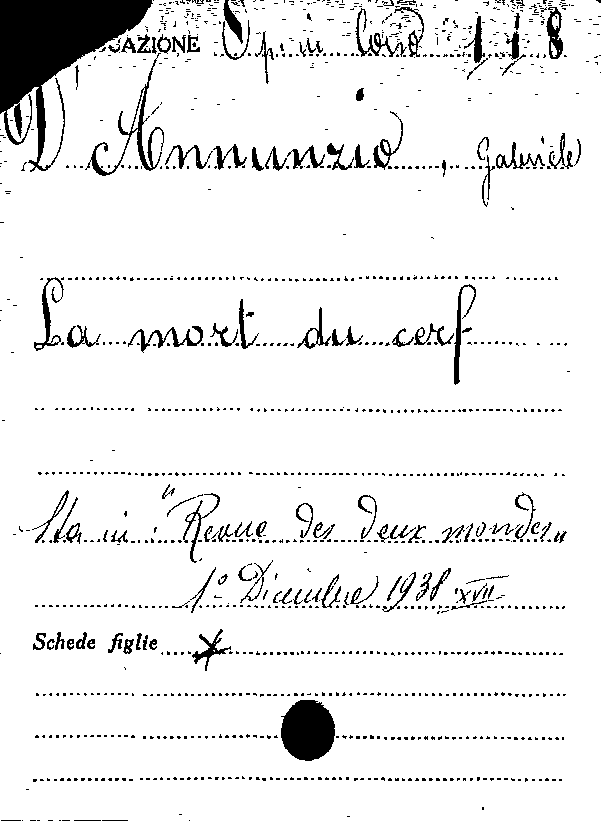 CAZIONE Op. in Corso 118
D'Annunzio, Gabriele
La mort du cerf
Sta in: "Revue des deux mondes„
1º Dicembre 1938 XVII
Schede figlie